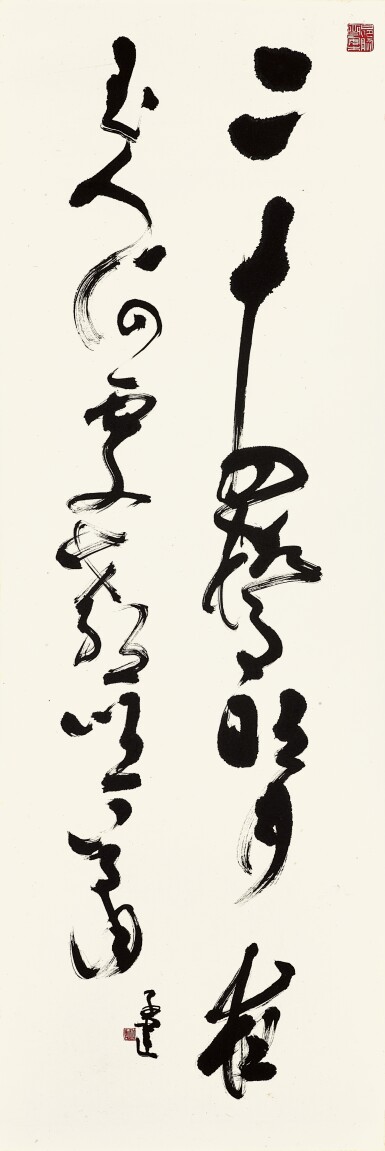 二十四橋明月夜
玉人何處教吹簫
孟達